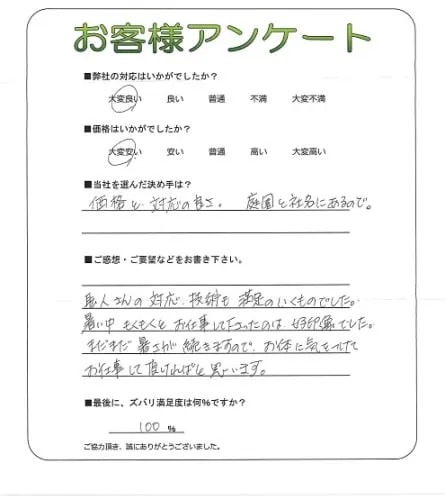 お客様アンケート
■弊社の対応はいかがでしたか?
大変良い 良い 普通 不満 大変不満
■価格はいかがでしたか?
大変安い 安い 普通 高い 大変高い
■当社を選んだ決め手は?
価格と対応の良さ。 庭園と社名にあるので。
■ご感想・ご要望などをお書き下さい。
職人さんの対応、技術も満足のいくものでした。
暑い中もくもくとお仕事して下さったのは、好印象でした。
まだまだ暑さが続きますので、お体に気をつけて
お仕事して頂ければと思います。
■最後に、ズバリ満足度は何%ですか?
100 %
ご協力頂き、誠にありがとうございました。